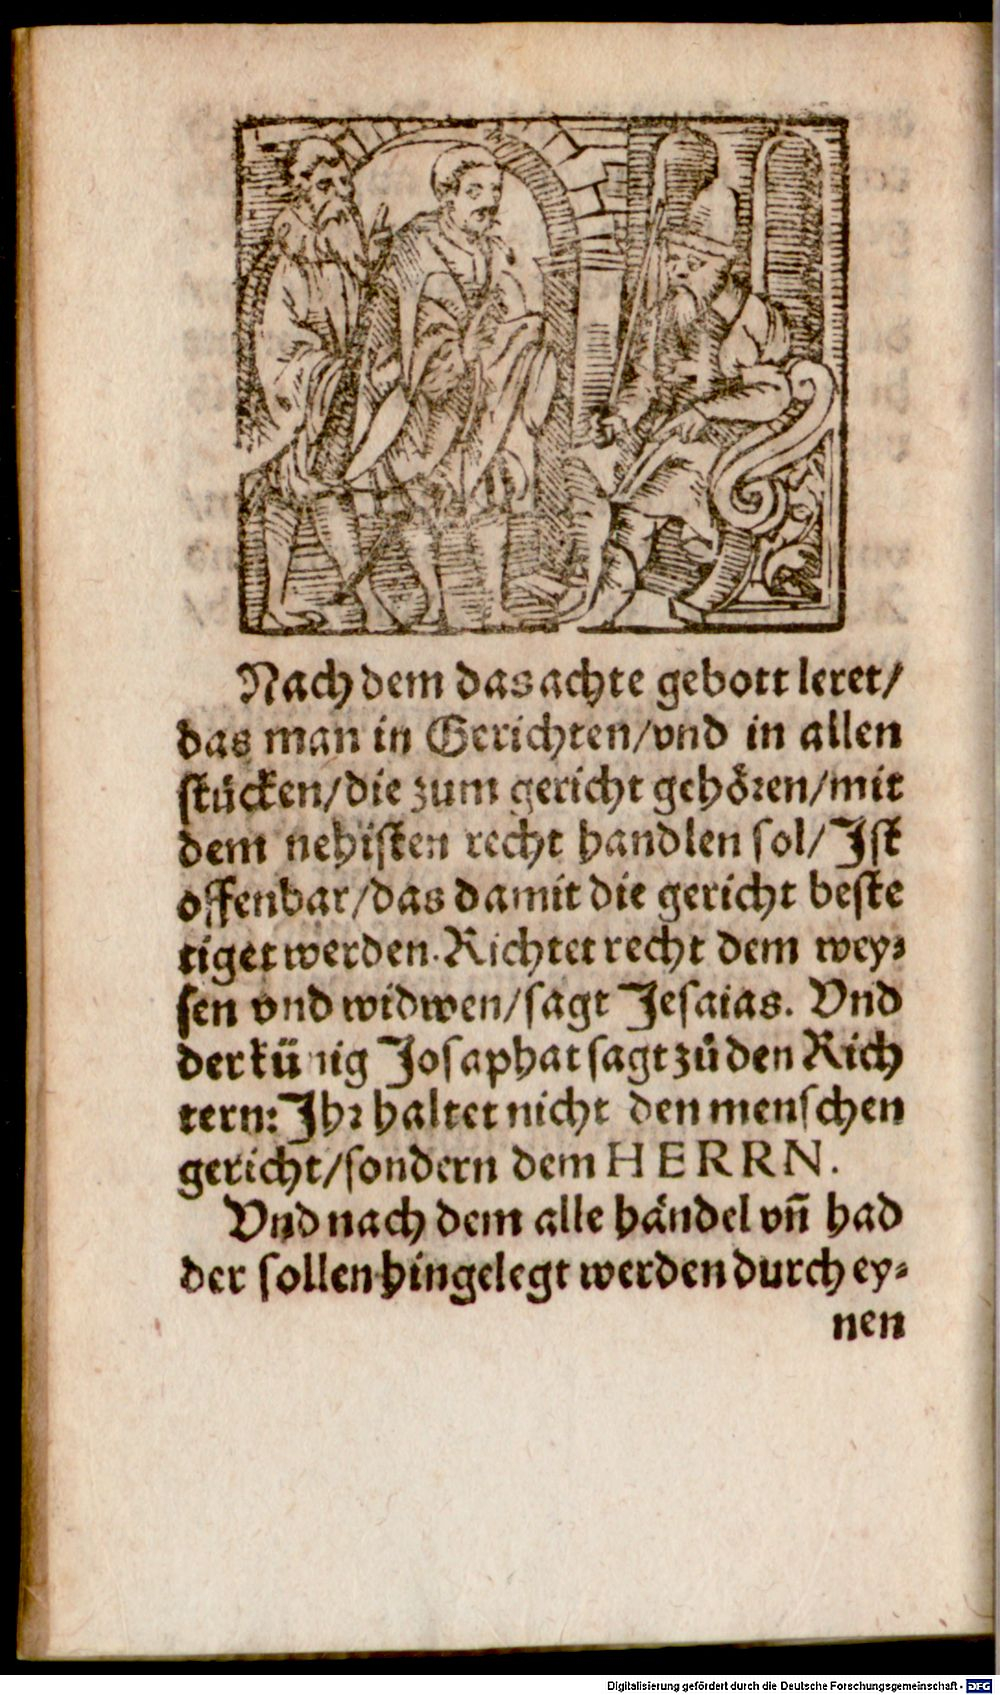 Nach dem das achte gebott leret/
das man in Gerichten/vnd in allen
stücken/die zum gericht gehören/mit
dem nehisten recht handlen sol/Ist
offenbar/das damit die gericht beste
tiget werden. Richtet recht dem wey⸗
sen vnd widwen/sagt Jesaias. Vnd
der künig Josaphat sagt zů den Rich
tern: Ihr haltet nicht den menschen
gericht/sondern dem HERRN.
Vnd nach dem alle händel vñ had
der sollen hingelegt werden durch ey⸗
nen
Digitalisierung gefördert durch die Deutsche Forschungsgemeinschaft - DFG